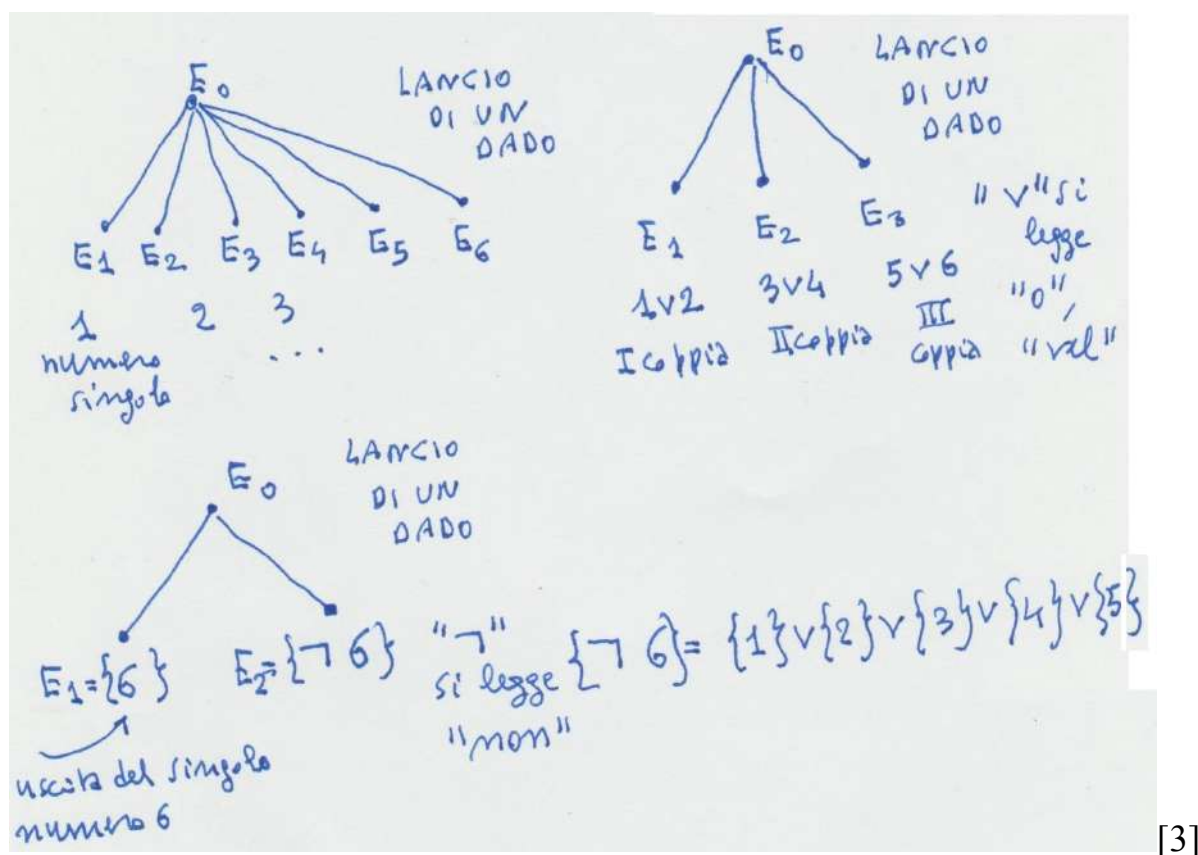 E0
LANCIO
DI UN
DADO
E1 E2 E3 E4 E5 E6
1 2 3
numero ...
singolo
E0
LANCIO
DI UN
DADO
E1 E2 E3
1v2 3v4 5v6
I coppia II coppia III coppia
"v" si
legge
"o",
"vel"
E0
LANCIO
DI UN
DADO
E1={6} E2={¬6}
"¬"
si legge
"non"
{¬6}= {1}v{2}v{3}v{4}v{5}
uscita del singolo
numero 6
[3]